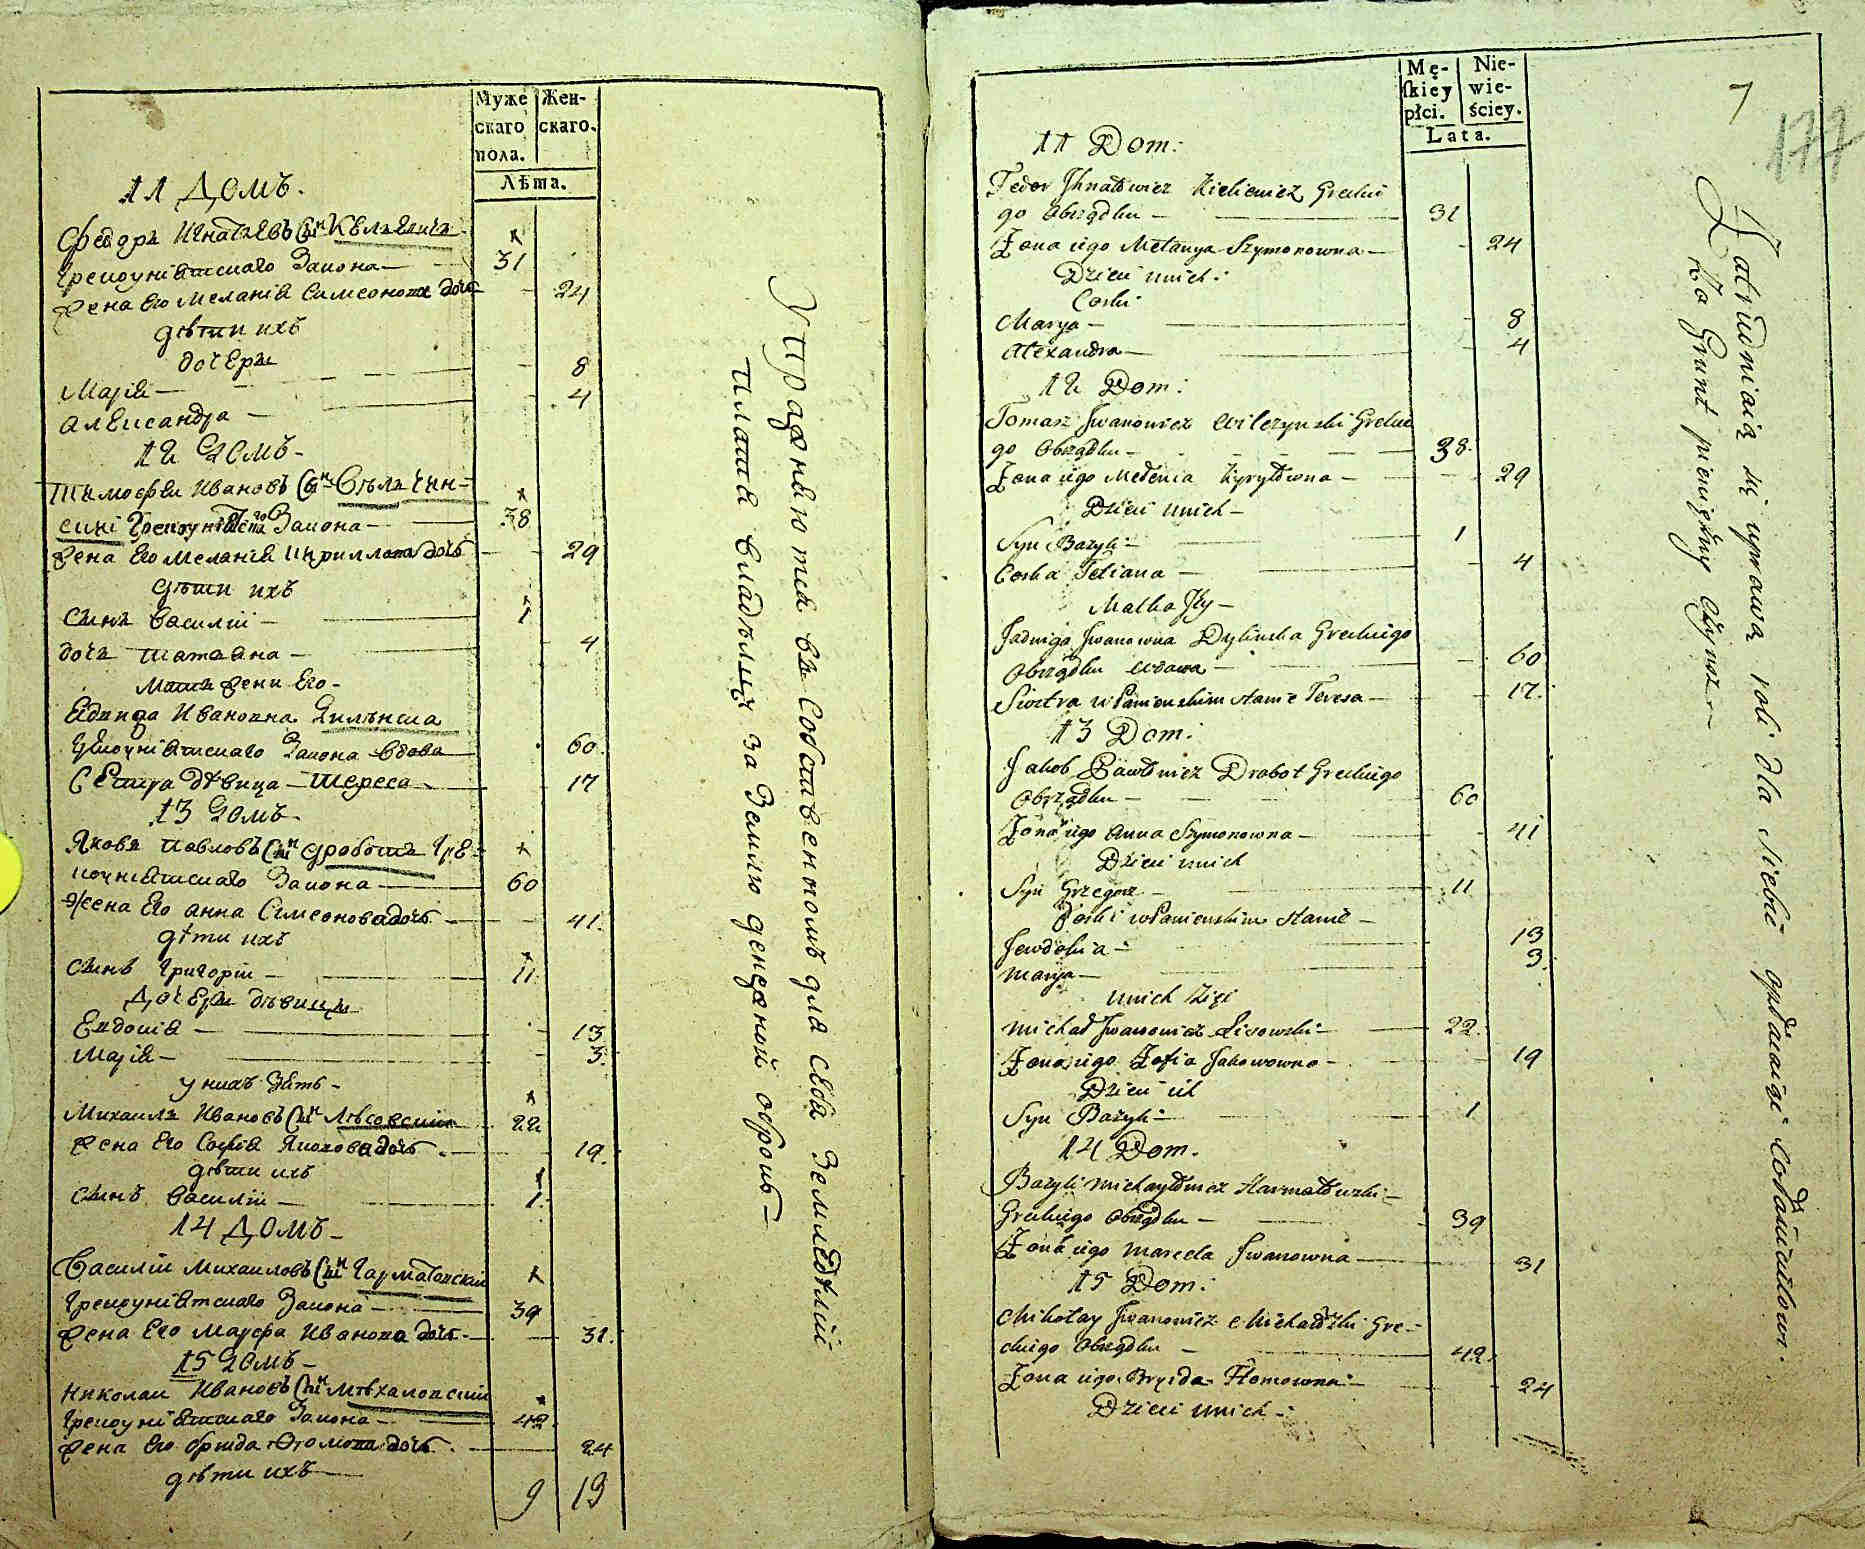 Муже
скаго
пола.
Жен-
скаго.
Лѣта.
11 Домъ.
Федоръ Игнатьевъ Сынъ Келяевичъ
Грекоуніатскаго Закона — 31
Жена Его Меланія Симеонова дочь — 24
дѣти ихъ
дочери
Марія — 8
Александра — 4
12 Домъ —
Тимофей Ивановъ Сынъ
Грекоуніатскаго Закона — 38
Жена Его Меланія Кириллова дочь — 29
дѣти ихъ
Сынъ Василій — 1
дочь Татьяна — 4
Мать жени Его —
Ядвига Ивановна
Грекоуніатскаго Закона вдова 60
Сестра дѣвица — Тереса — 17
13 Домъ
Яковъ Павловъ Сынъ Дроботъ Гре-
коуніатскаго Закона — 60
Жена Его Анна Симеонова дочь — 41
дѣти ихъ
Сынъ Григорій — 11
Дочери дѣвицы
Евдокія — 13
Марія — 3
у нихъ Зять —
Михаилъ Ивановъ Сынъ Лѣсовскій 22
Жена Его Софія Яковова дочь — 19
дѣти ихъ
Сынъ Василій — 1
14 Домъ —
Василій Михаиловъ Сынъ Гарматовскій
Грекоуніатскаго Закона — 39
Жена Его Марфа Иванова дочь — 31
15 Домъ —
Николай Ивановъ Сынъ Мѣхаловскій
Грекоуніатскаго Закона — 42
Жена Его Брида Фомова дочь — 24
дѣти ихъ —
9 13
Упражняются въ Собственномъ для себя Земледѣліи
Платя владѣльцу за Землю денежной оброкъ —
7
177
Mę-
skiey
płci.
Nie-
wie-
ściey.
Lata.
11 Dom:
Fedor Ihnatowicz Kielewicz Greckie
go Obrządku — 31
Żona iego Melanya Szymonowna — 24
Dzieci unich:
Corki
Marya — 8
Alexandra — 4
12 Dom:
Tomasz Iwanowicz Wilczynski Greckie
go Obrządku — 38
Żona iego Melenia Kyryłowna — 29
Dzieci unich —
Syn Bazyli — 1
Corka Tetiana — 4
Matka Iży —
Jadwiga Iwanowna Dylinska Greckiego
Obrządku wdowa — 60
Siostra w Panienskim stanie Teresa — 17
13 Dom:
Jakob Pawłowicz Drabot Greckiego
Obrządku — 60
Żona iego Anna Szymonowna — 41
Dzieci unich
Syn Grzegorz — 11
Corki w Panienskim stanie —
Jewdokia — 13
Marya — 3
unich Zięć
Michał Iwanowicz Lisowski — 22
Żona iego Zofia Jakowowna — 19
Dzieci ich
Syn Bazyli — 1
14 Dom.
Bazyli Michayłowicz Harmatowski —
Greckiego Obrządku — 39
Żona iego Marcela Iwanowna — 31
15 Dom:
Mikołay Iwanowicz Michalski Gre-
ckiego Obrządku — 42
Żona iego Bryida Homowna — 24
Dzieci unich —
Zatrudniaią się uprawą roli dla siebie opłacaiąc
Za Grunt pieniężny Czynsz —